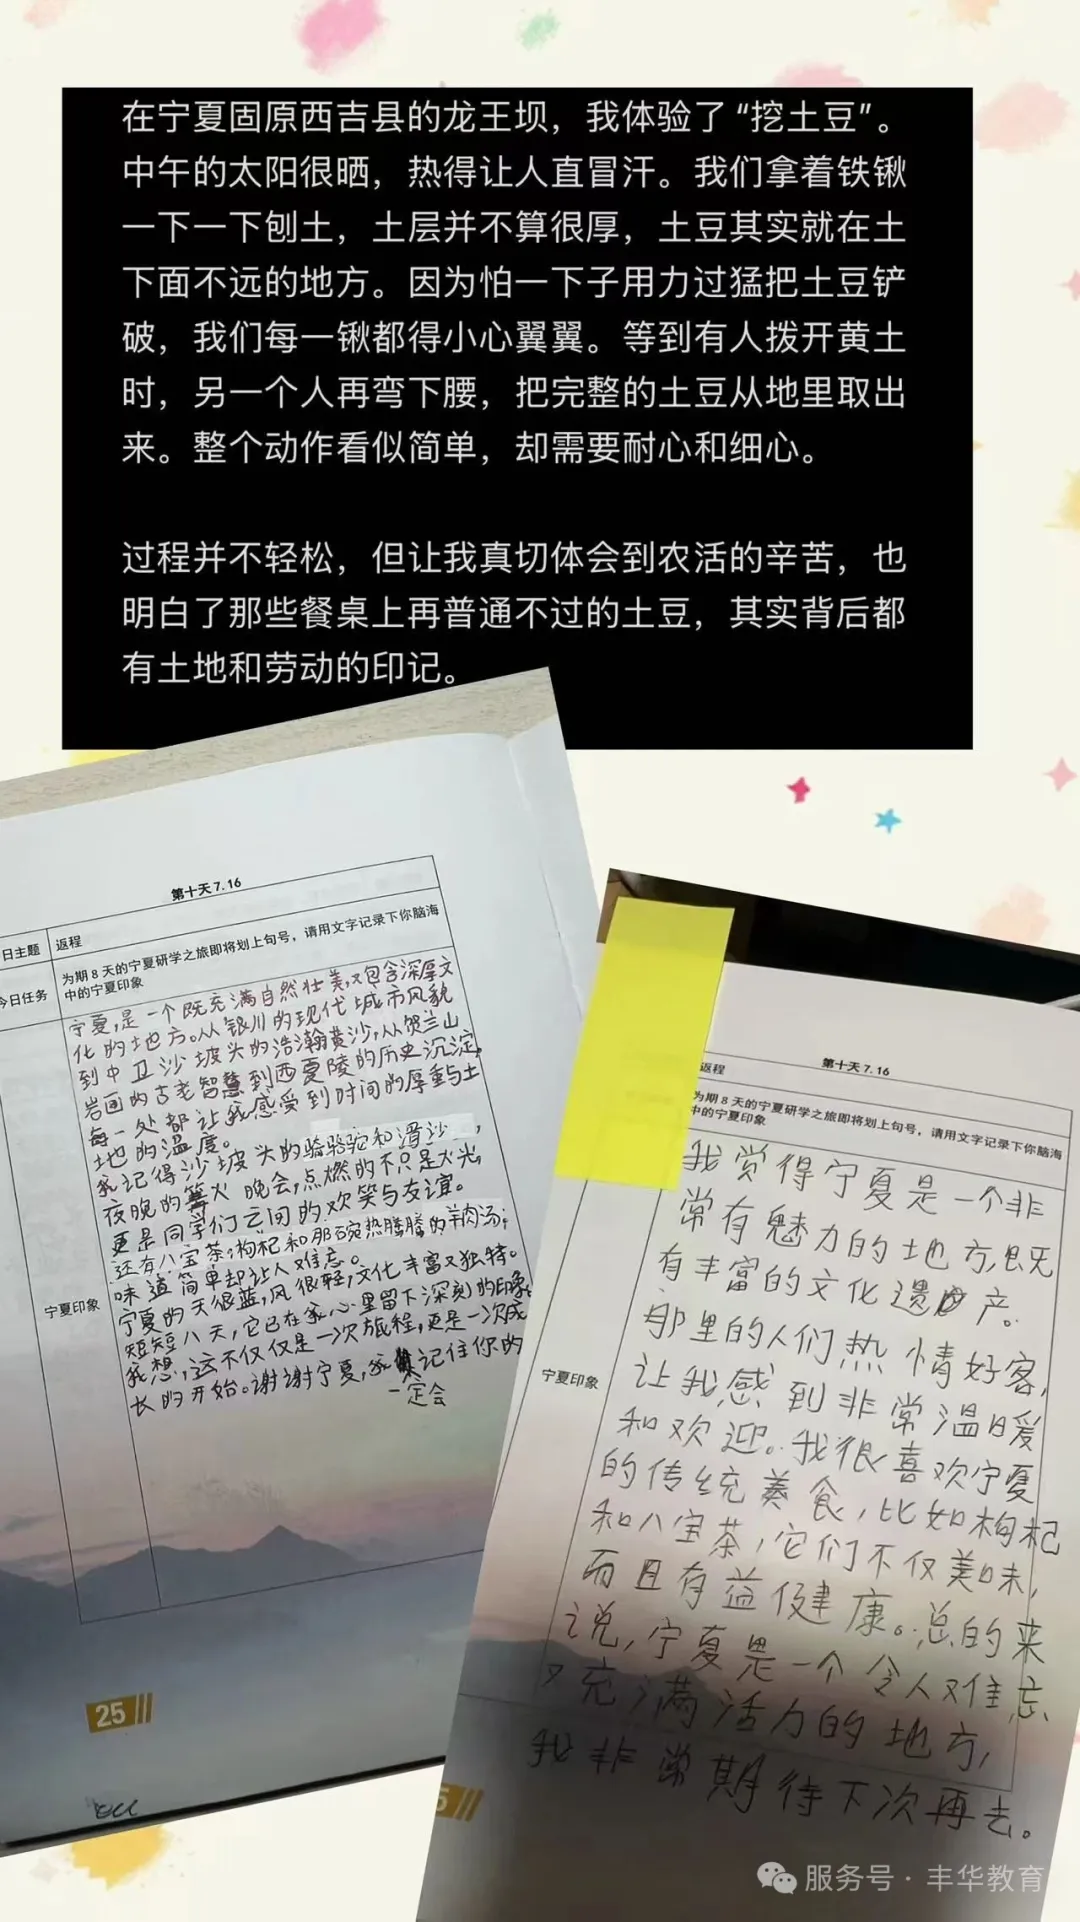 在宁夏固原西吉县的龙王坝，我体验了“挖土豆”。
中午的太阳很晒，热得让人直冒汗。我们拿着铁锹
一下一下刨土，土层并不算很厚，土豆其实就在土
下面不远的地方。因为怕一下子用力过猛把土豆铲
破，我们每一锹都得小心翼翼。等到有人拨开黄土
时，另一个人再弯下腰，把完整的土豆从地里取出
来。整个动作看似简单，却需要耐心和细心。
过程并不轻松，但让我真切体会到农活的辛苦，也
明白了那些餐桌上再普通不过的土豆，其实背后都
有土地和劳动的印记。
第十天7.16
日主题 返程
今日任务
为期8天的宁夏研学之旅即将划上句号，请用文字记录下你脑海
中的宁夏印象
宁夏印象
宁夏，是一个既充满自然壮美，又包含深厚文
化的地方。从银川的现代城市风貌
到中卫沙坡头的浩瀚黄沙，从贺兰山
岩画的古老智慧到西夏陵的历史沉淀，
每一处都让我感受到时间的厚重与土
地的温度。
我记得沙坡头的骑骆驼和滑沙，
夜晚的篝火晚会，点燃的不只是火光，
更是同学们之间的欢笑与友谊。
还有八宝茶，枸杞和那碗热腾腾的羊肉汤；
味道简单却让人难忘。
宁夏的天很蓝，风很轻，文化丰富又独特。
短短八天，它已在我心里留下深刻的印象。
我想，这不仅仅是一次旅程，更是一次成
长的开始。谢谢宁夏，我记住你的
一定会
25
第十天7.16
返程
为期8天的宁夏研学之旅即将划上句号，请用文字记录下你脑海
中的宁夏印象
宁夏印象
我觉得宁夏是一个非
常有魅力的地方，既
有丰富的文化遗产。
那里的人们热情好客，
让我感到非常温暖
和欢迎。我很喜欢宁夏
的传统美食，比如枸杞
和八宝茶，它们不仅美味，
而且有益健康。总的来
说，宁夏是一个令人难忘
又充满活力的地方，
我非常期待下次再去。
服务号·丰华教育